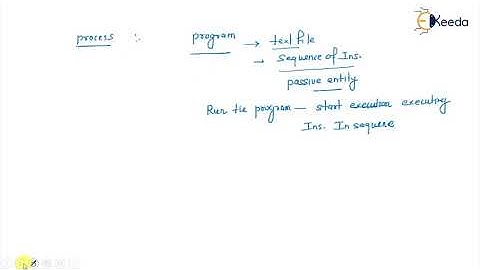 Keeda
process :- program → text file
→ Sequence of Ins.
passive entity
Run the program — start execution executing
Ins. In sequence